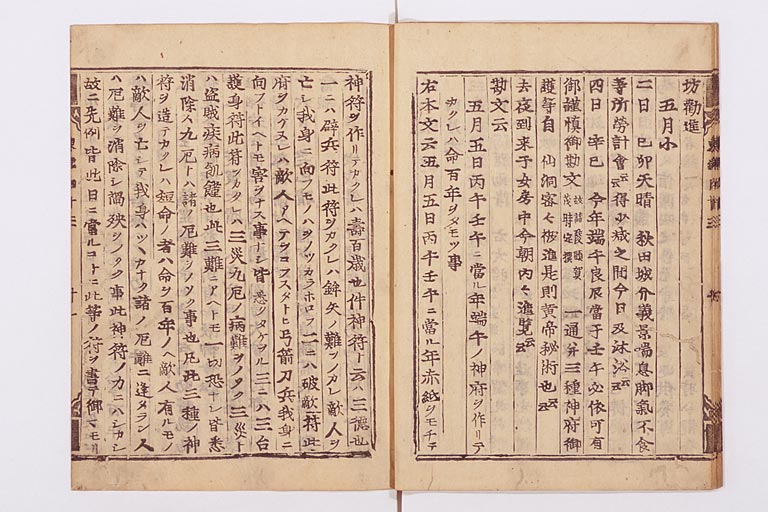 坊勧進
五月小
二日 己卯天晴 秋田城介義景喘息脚氣不食
等所勞計會云云得少減之間今日及沐浴云云
四日 辛巳 今年端午良辰當于壬午必依可有
御謹慎御勘文 一通并三種神府御
護等自 仙洞密々被進是則黄帝秘術也云云
去夜到来于女房中今朝内々進覧云云
勘文云
五月五日丙午壬午ニ當ル年端午ノ神府ヲ作リテ
カクレハ命百年ヲタモツ事
右本文云五月五日丙午壬午ニ當ル年赤紙ヲモチテ
神符ヲ作リテカクレハ壽百歳也件神符ト云ハ三徳也
一ニハ辟兵符此符ヲカクレハ鉾矢ノ難ヲノカレ敵人ヲ
亡シ我身ニ向フモノハヲノツカラホロフ二ニハ破敵符此
府ヲカケヌレハ敵人アヘテヲコラスタトヒ弓箭刀兵我身ニ
向フトイヘトモ害ヲナス事ナシ皆悉クタケヲル三ニハ三台
護身符此符ヲカクレハ三災九厄ノ病難ヲノソク三災ト
ハ盗賊疾病飢饉也此三難ニアヘトモ一切恐ナシ皆悉
消除ス九厄トハ諸ノ厄難ヲノソク事也凡此三種ノ神
符ヲ造テカクレハ短命ノ者ハ命ヲ百年ノヘ敵人有ルモノ
ハ敵人ヲ亡シテ我身ハツヽカナク諸ノ厄難ニ逢タラン人
ハ厄難ヲ消除シ禍殃ヲノソク事此神符ノ力ニハシカシ
故ニ先例皆此日ニ當ルコトニ此等ノ符ヲ書テ御マモリ